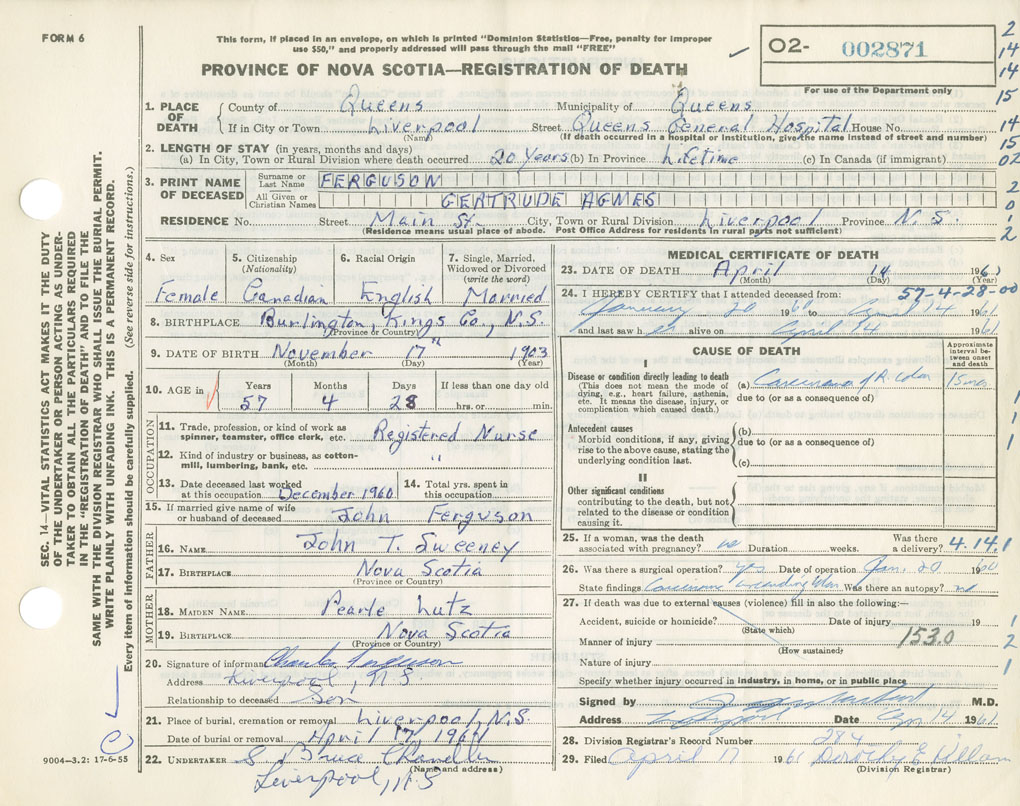 FORM 6
This form, if placed in an envelope, on which is printed "Dominion Statistics—Free, penalty for improper
use $50," and properly addressed will pass through the mail "FREE"
PROVINCE OF NOVA SCOTIA—REGISTRATION OF DEATH
O2- 002871
For use of the Department only
1. PLACE OF DEATH County of Queens Municipality of Queens
If in City or Town Liverpool Street Queens General Hospital House No.
(Name) (If death occurred in a hospital or institution, give the name instead of street and number)
2. LENGTH OF STAY (in years, months and days)
(a) In City, Town or Rural Division where death occurred 20 Years (b) In Province Lifetime (c) In Canada (if immigrant)
3. PRINT NAME OF DECEASED Surname or Last Name FERGUSON
All Given or Christian Names GERTRUDE AGMES
RESIDENCE No. Street Main St. City, Town or Rural Division Liverpool Province N.S.
(Residence means usual place of abode. Post Office Address for residents in rural parts not sufficient)
4. Sex Female
5. Citizenship (Nationality) Canadian
6. Racial Origin English
7. Single, Married, Widowed or Divorced (write the word) Married
8. BIRTHPLACE Burlington, Kings Co., N.S.
(Province or Country)
9. DATE OF BIRTH November 17th 1903
(Month) (Day) (Year)
10. AGE in Years Months Days If less than one day old
57 4 28 hrs. or min.
OCCUPATION
11. Trade, profession, or kind of work as spinner, teamster, office clerk, etc. Registered Nurse
12. Kind of industry or business, as cotton-mill, lumbering, bank, etc. "
13. Date deceased last worked at this occupation December 1960
14. Total yrs. spent in this occupation
15. If married give name of wife or husband of deceased John Ferguson
FATHER
16. NAME John T. Sweeney
17. BIRTHPLACE Nova Scotia
(Province or Country)
MOTHER
18. MAIDEN NAME Pearle Lutz
19. BIRTHPLACE Nova Scotia
(Province or Country)
20. Signature of informant Charles Ferguson
Address Liverpool, N.S.
Relationship to deceased Son
21. Place of burial, cremation or removal Liverpool, N.S.
Date of burial or removal April 17/1961
22. UNDERTAKER S. Bruce Chandler
(Name and address)
Liverpool, N.S
MEDICAL CERTIFICATE OF DEATH
23. DATE OF DEATH April 14 1961
(Month) (Day) (Year)
57-4-28-00
24. I HEREBY CERTIFY that I attended deceased from:
January 20 1960 to April 14 1961
and last saw her alive on April 14 1961
CAUSE OF DEATH
Approximate interval between onset and death
I
Disease or condition directly leading to death
(This does not mean the mode of dying, e.g., heart failure, asthenia, etc. It means the disease, injury, or complication which caused death.)
(a) Carcinoma of R. Colon 15 mos
due to (or as a consequence of)
Antecedent causes
Morbid conditions, if any, giving rise to the above cause, stating the underlying condition last.
(b)
due to (or as a consequence of)
(c)
II
Other significant conditions
contributing to the death, but not related to the disease or condition causing it.
25. If a woman, was the death associated with pregnancy? no Duration weeks. Was there a delivery? 4.14.1
26. Was there a surgical operation? yes Date of operation Jan. 20 1960
State findings Carcinoma Ascending Colon Was there an autopsy? no
27. If death was due to external causes (violence) fill in also the following:—
Accident, suicide or homicide? Date of injury 19
(State which)
Manner of injury 153.0
(How sustained)
Nature of injury
Specify whether injury occurred in industry, in home, or in public place
Signed by M.D.
Address Liverpool Date Apr 14 1961
28. Division Registrar's Record Number 284
29. Filed April 17 1961
(Division Registrar)
SEC. 14—VITAL STATISTICS ACT MAKES IT THE DUTY
OF THE UNDERTAKER OR PERSON ACTING AS UNDER-
TAKER TO OBTAIN ALL THE PARTICULARS REQUIRED
IN THE "REGISTRATION OF DEATH" AND TO FILE THE
SAME WITH THE DIVISION REGISTRAR WHO SHALL ISSUE THE BURIAL PERMIT.
WRITE PLAINLY WITH UNFADING INK. THIS IS A PERMANENT RECORD.
Every item of information should be carefully supplied. (See reverse side for instructions.)
9004—3.2: 17-6-55
2
14
14
15
14
15
02
2
0
1
2
1
1
1
1
1
2
1